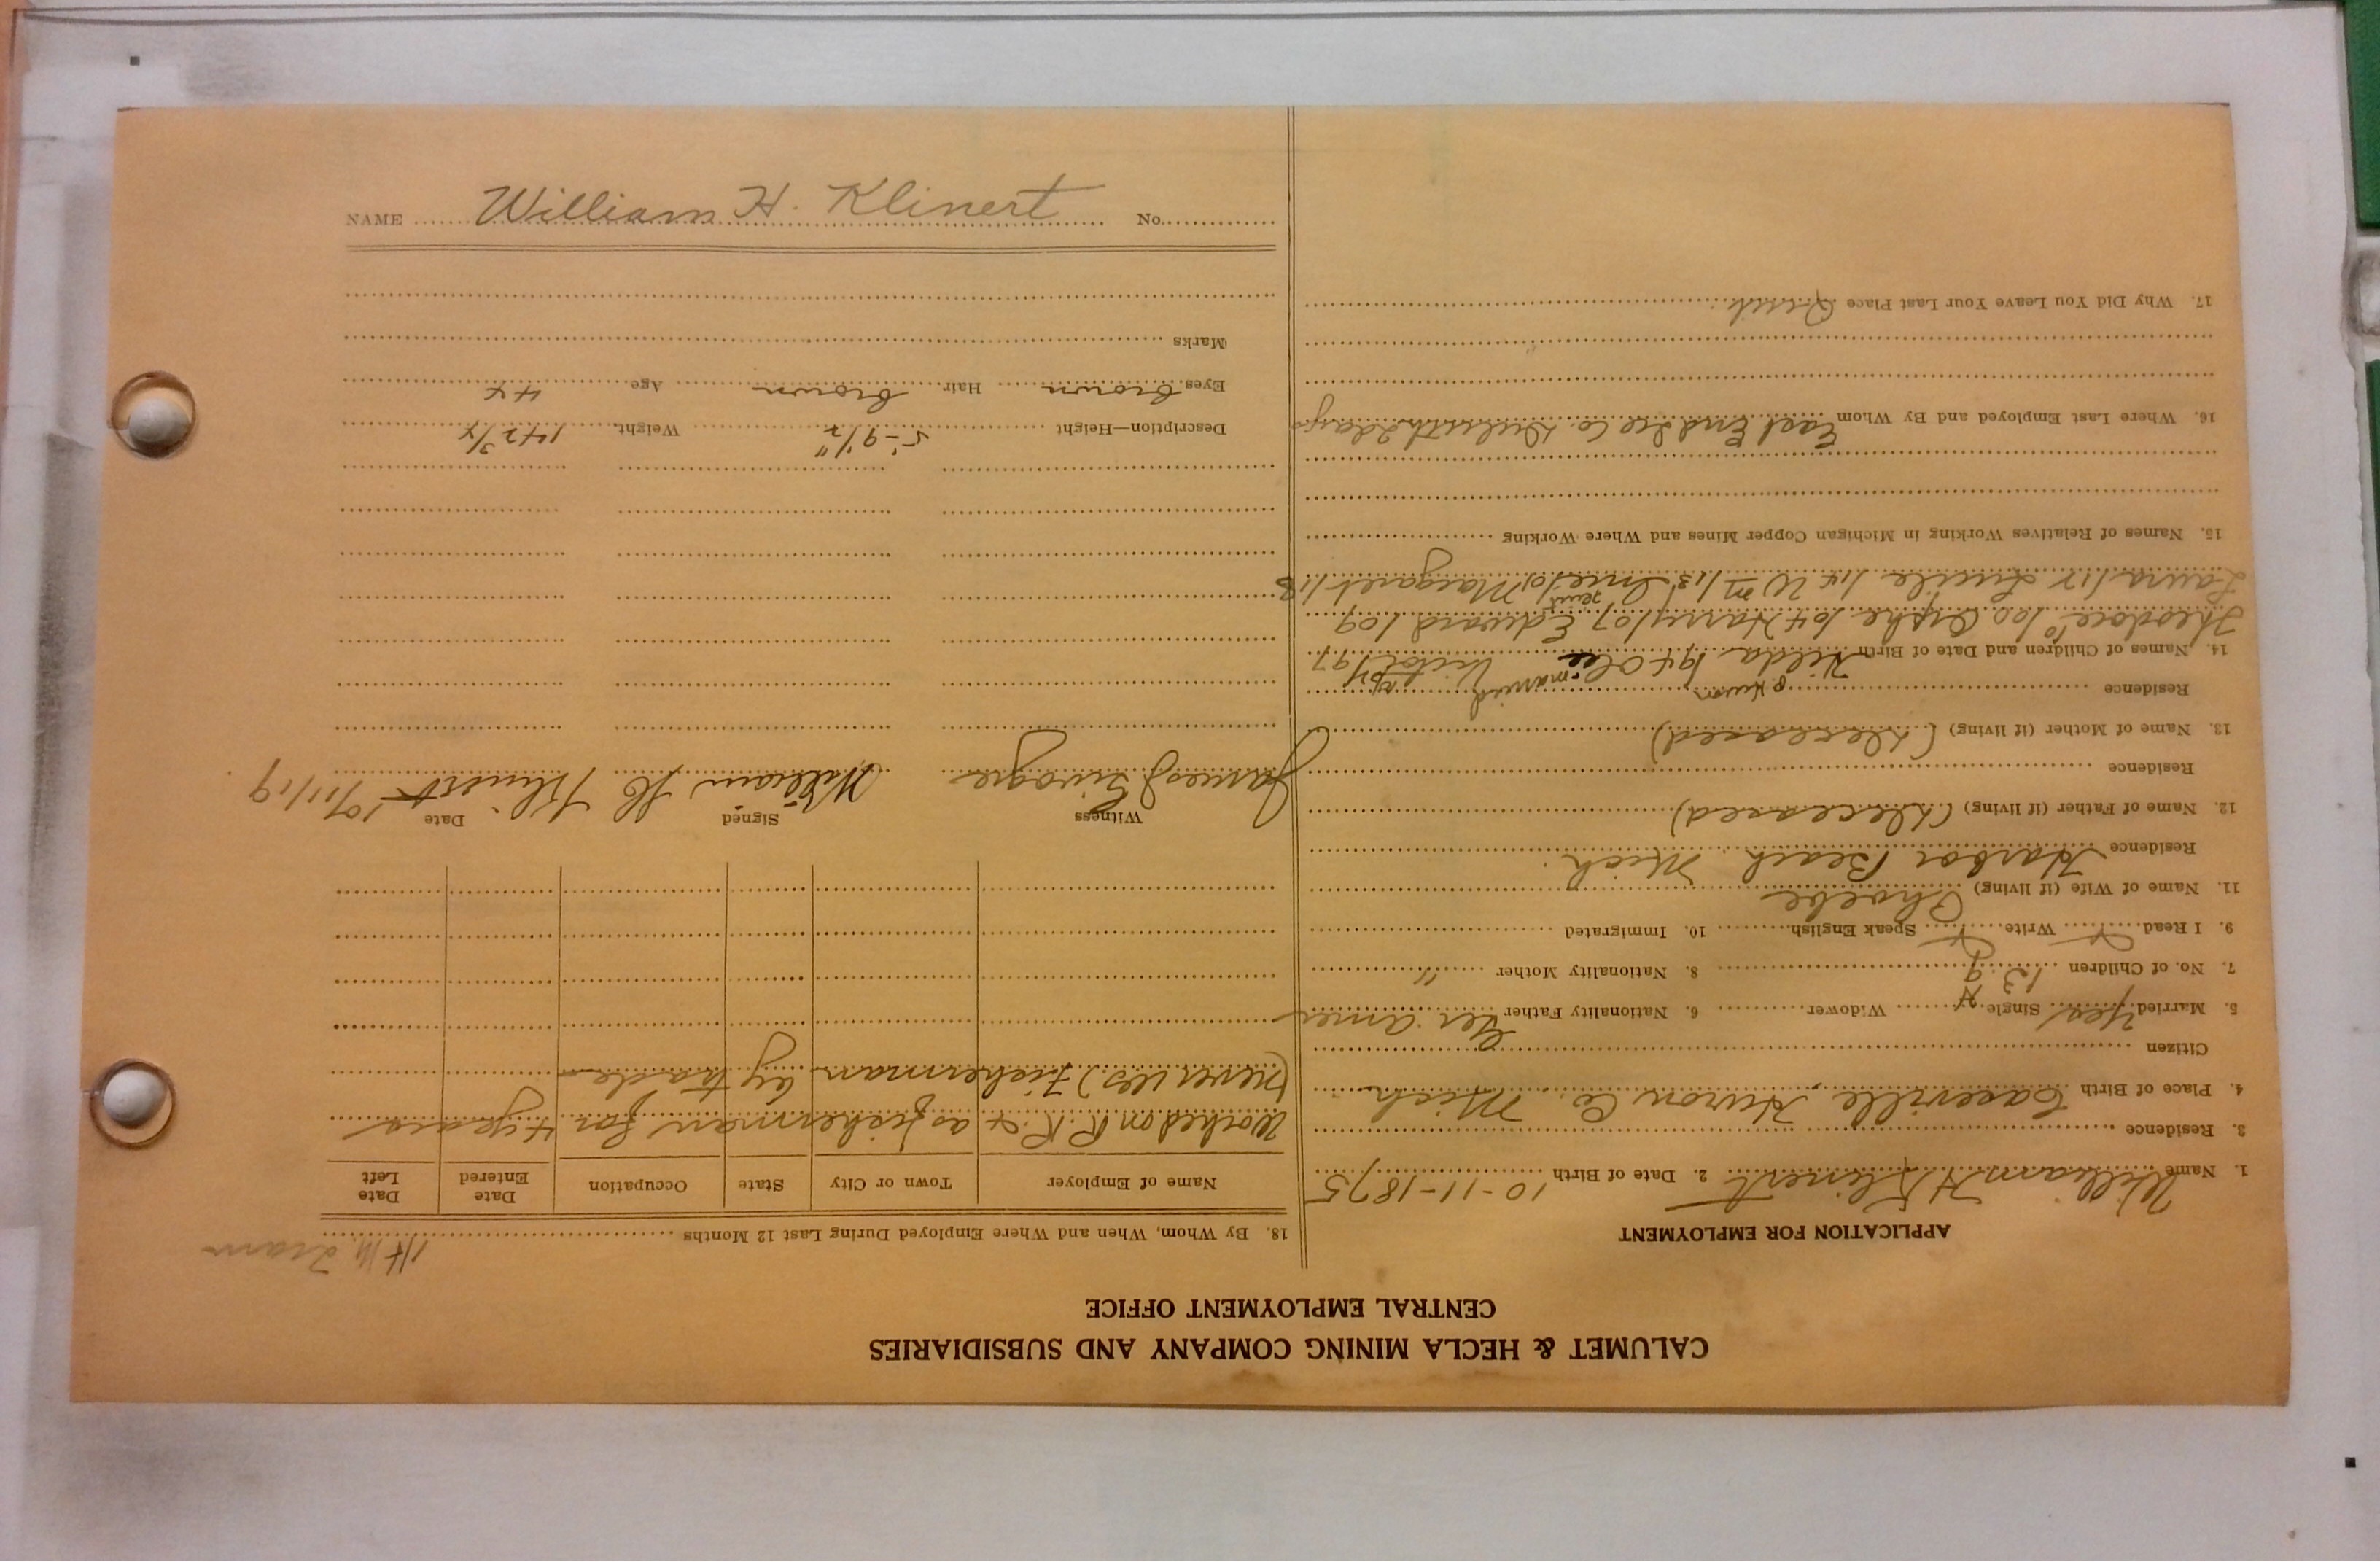 CALUMET & HECLA MINING COMPANY AND SUBSIDIARIES
CENTRAL EMPLOYMENT OFFICE
APPLICATION FOR EMPLOYMENT
1. Name William H Klinert 2. Date of Birth 10-11-1875
3. Residence
4. Place of Birth Caseville, Huron Co. Mich
Citizen
5. Married Yes Single Widower 6. Nationality Father Ger. Amer
7. No. of Children 13 8. Nationality Mother "
9. I Read Write Speak English 10. Immigrated
11. Name of Wife (if living) Phoebe
Residence Harbor Beach Mich.
12. Name of Father (if living) (Deceased)
Residence
13. Name of Mother (if living) (Deceased)
Residence
P. Huron married
14. Names of Children and Date of Birth Hilda 94 Victor 97
Theodore 00 Harry 07 Edward 09
Laura 12 Lucile 14 Wm 13 Margaret 18
15. Names of Relatives Working in Michigan Copper Mines and Where Working
16. Where Last Employed and By Whom East End Ice Co. Duluth 2 days
17. Why Did You Leave Your Last Place Quit.
18. By Whom, When and Where Employed During Last 12 Months
Name of Employer Town or City State Occupation Date Entered Date Left
Worked on R.R. & as fisherman for 4 years
(never u.s.) Fisherman by trade
Witness Signed Date
James William H Klinert 10/11/19
Description—Height 5'-9 1/2" Weight 142 3/4
Eyes brown Hair brown Age 44
Marks
NAME William H. Klinert No.